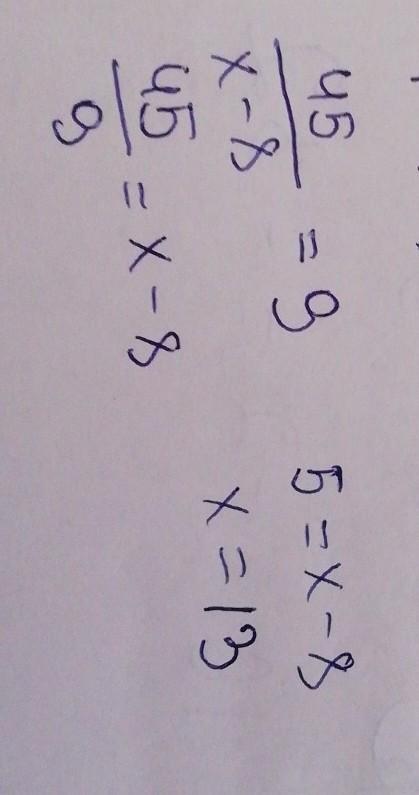 45
x-8 = 9
45
9 = x-8
5=x-8
x=13